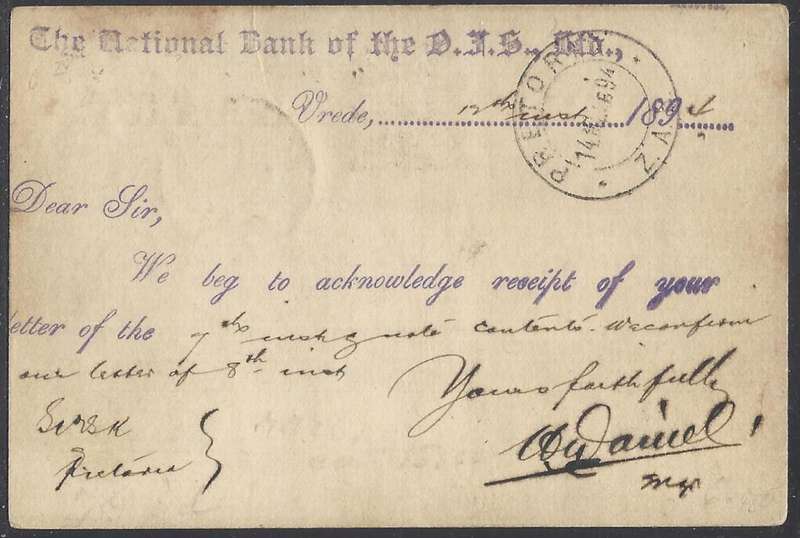 The National Bank of the O.F.S., Ltd.,
Vrede, 12th inst 1894
PRETORIA Z.A.R. 94
Dear Sir,
We beg to acknowledge receipt of your
letter of the 7th inst & note contents. We confirm
our letter of 8th inst
Yours faithfully
Daniel
Mgr
Pretoria